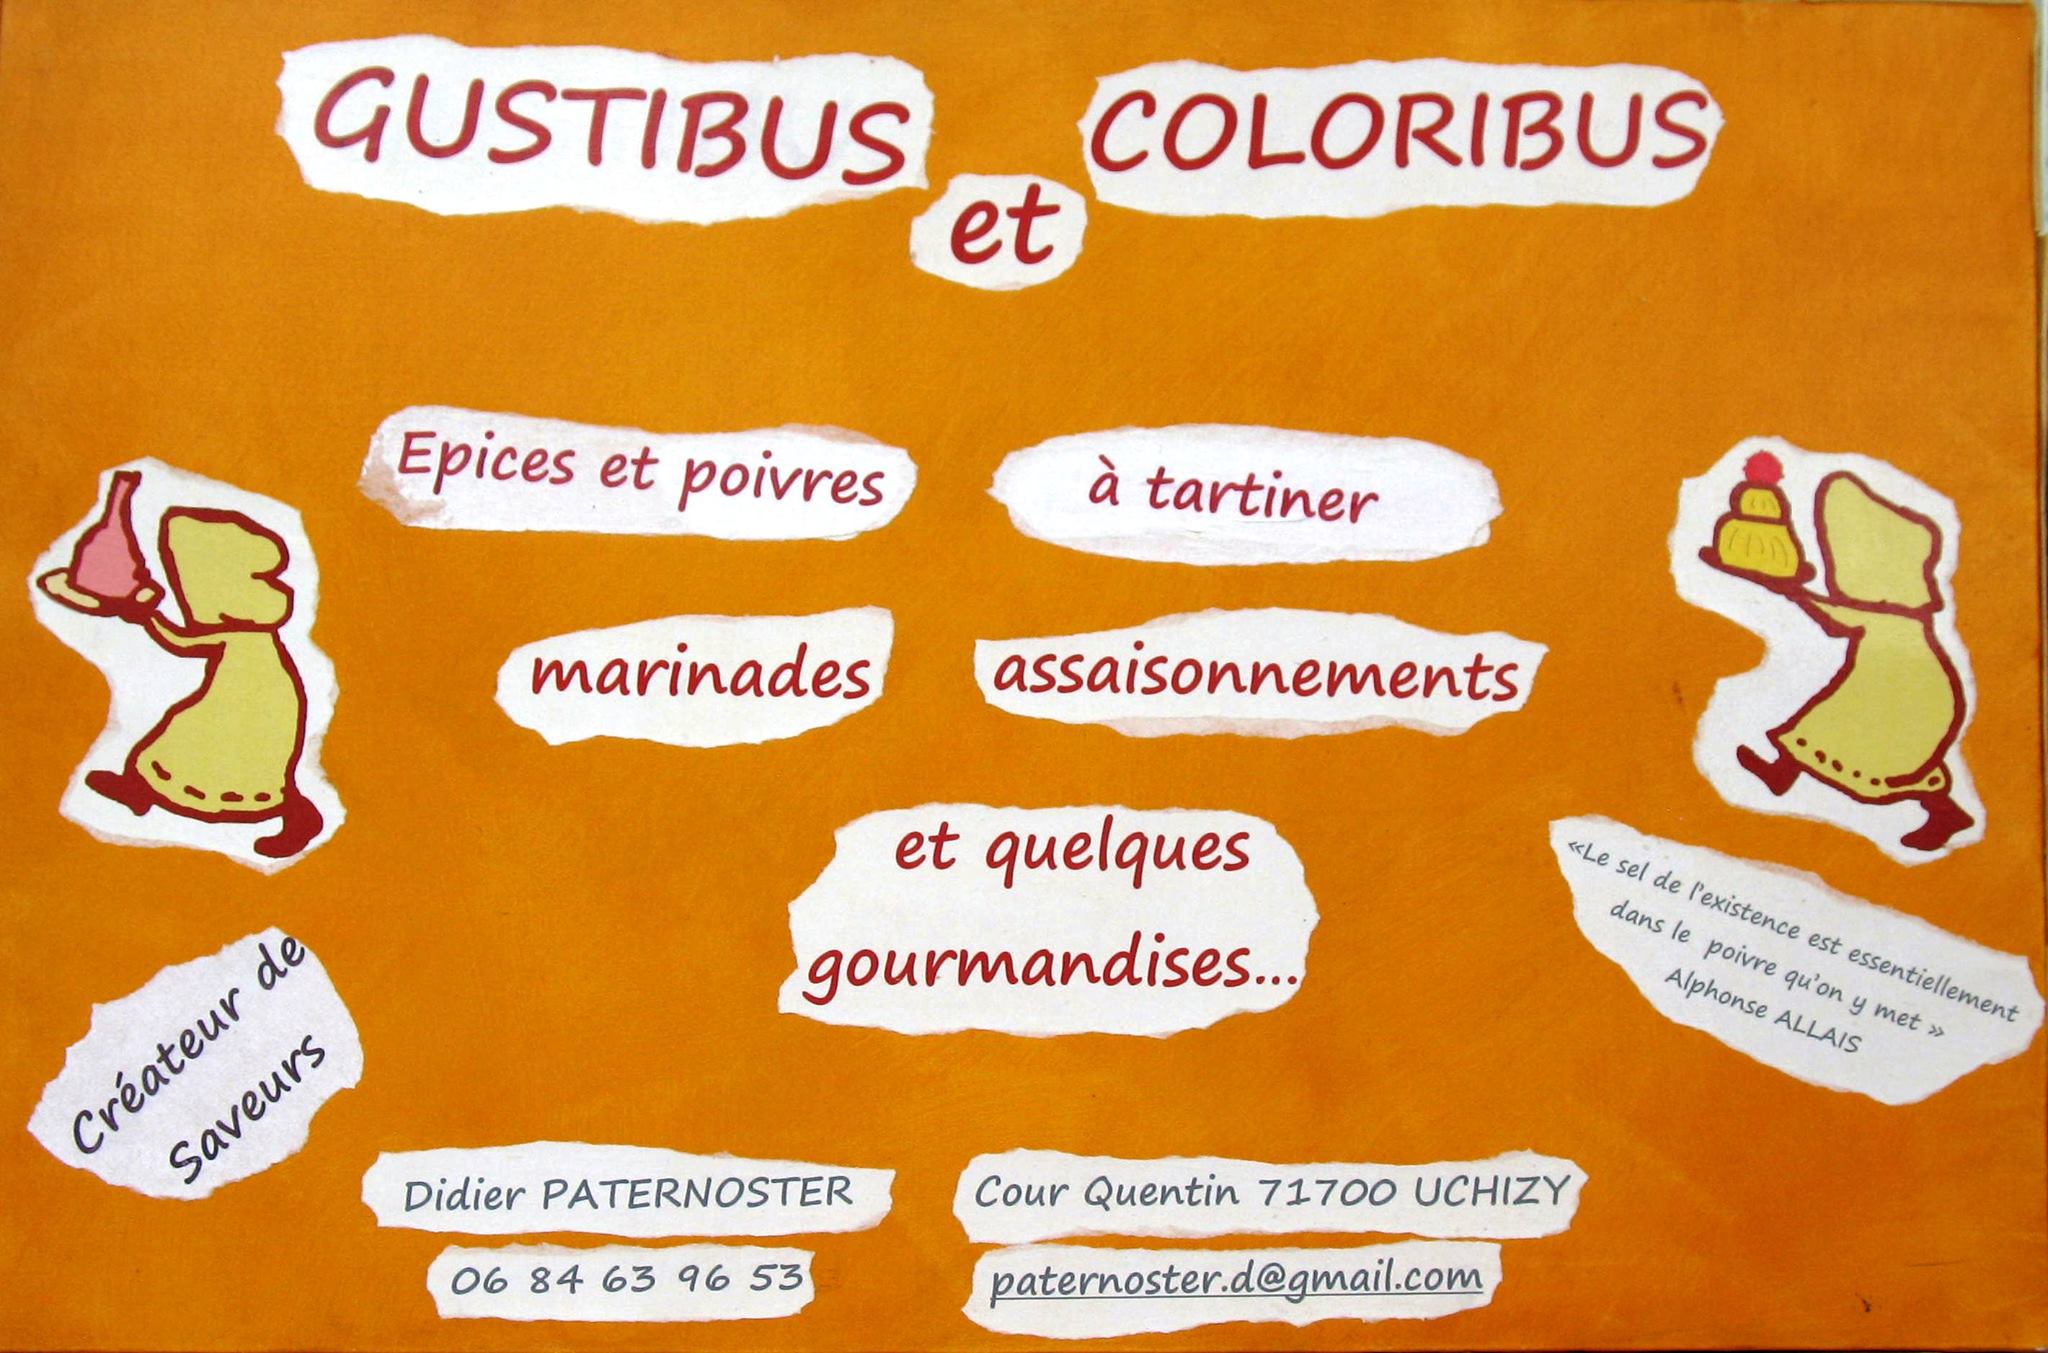 GUSTIBUS
et
COLORIBUS
Epices et poivres
à tartiner
marinades
assaisonnements
et quelques
gourmandises...
Créateur de
Saveurs
«Le sel de l'existence est essentiellement
dans le poivre qu'on y met »
Alphonse ALLAIS
Didier PATERNOSTER
Cour Quentin 71700 UCHIZY
06 84 63 96 53
paternoster.d@gmail.com